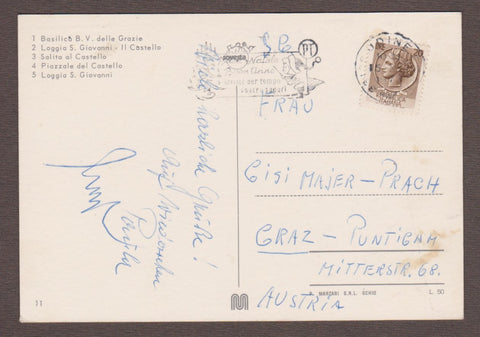 1 Basilica B. V. delle Grazie
2 Loggia S. Giovanni - Il Castello
3 Salita al Castello
4 Piazzale del Castello
5 Loggia S. Giovanni
herzliche Grüße!
Auf Wiedersehen
11
SB
PT
UDINE
Natale
FRAU
GISI MAJER-PRACH
GRAZ-PUNTIGAM
MITTERSTR. 68.
AUSTRIA
MARZARI S.R.L. SCHIO
L. 50